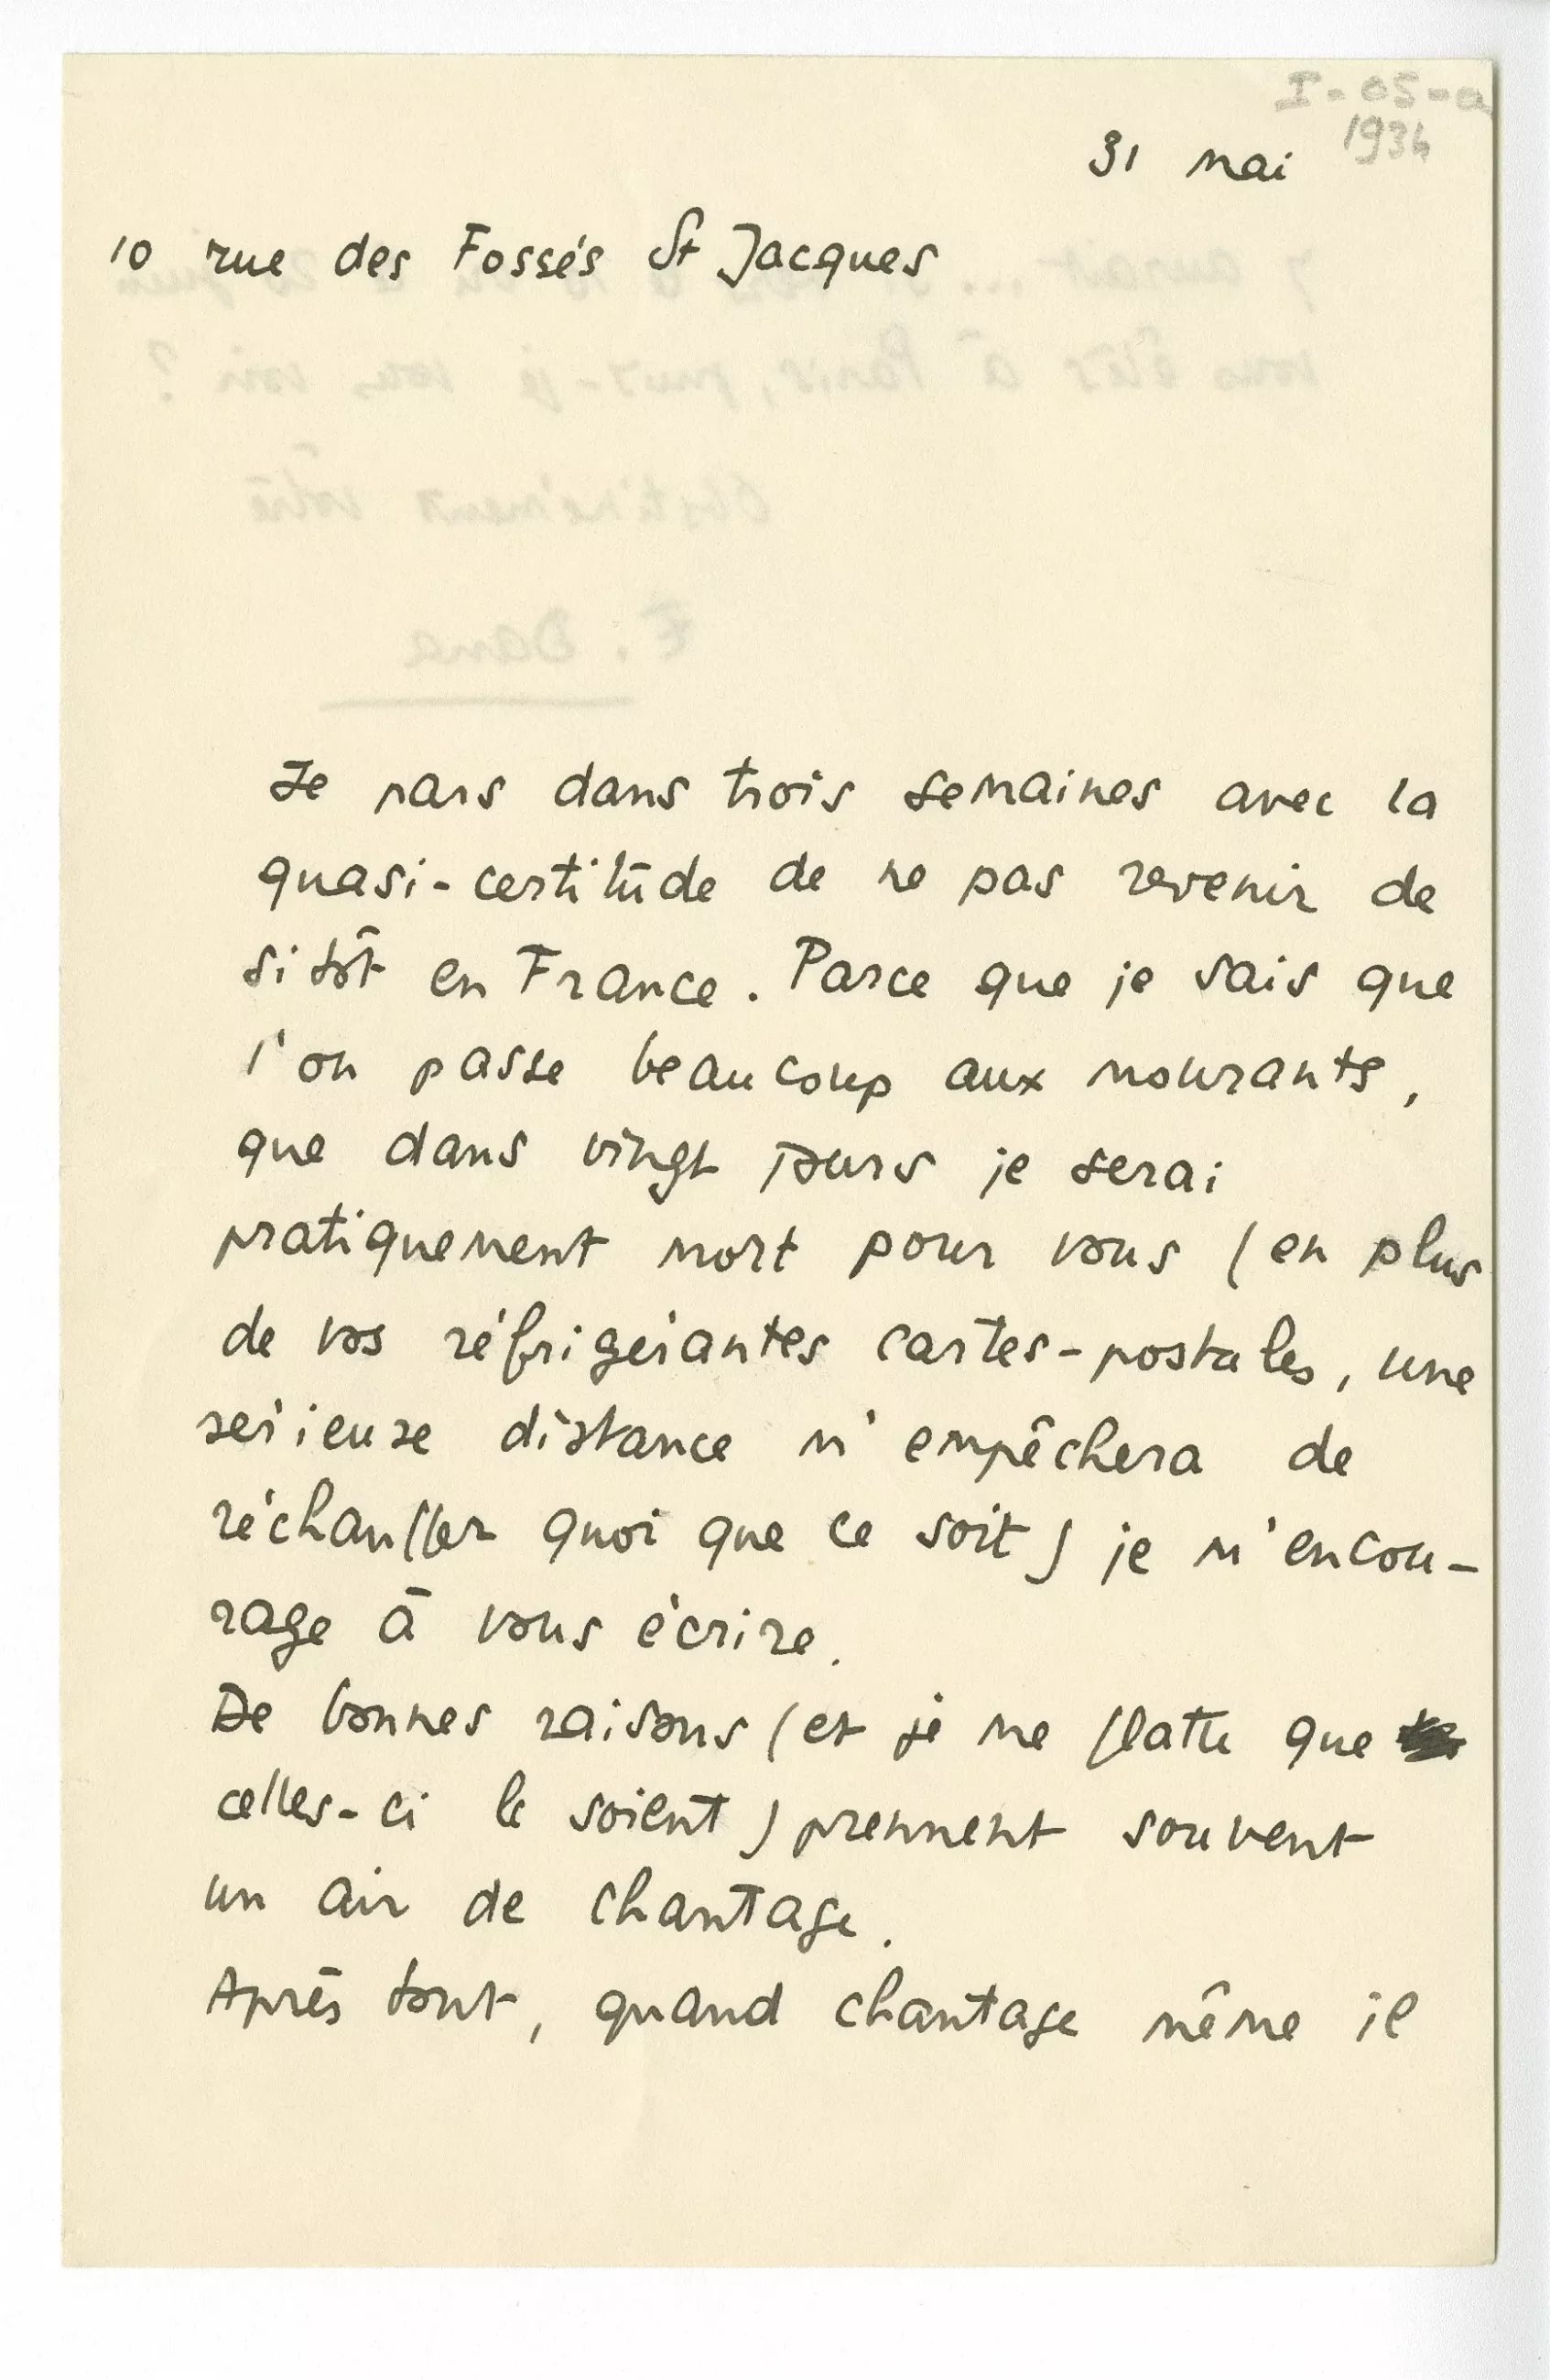 I-05-a
1934
31 mai
10 rue des Fossés St Jacques
Je pars dans trois semaines avec la
quasi-certitude de ne pas revenir de
sitôt en France. Parce que je sais que
l'on passe beaucoup aux mourants,
que dans vingt jours je serai
pratiquement mort pour vous (en plus
de vos réfrigérantes cartes-postales, une
sérieuse distance m'empêchera de
réchauffer quoi que ce soit) je m'encou-
rage à vous écrire.
De bonnes raisons (et je me flatte que
celles-ci le soient) prennent souvent
un air de chantage.
Après tout, quand chantage même il